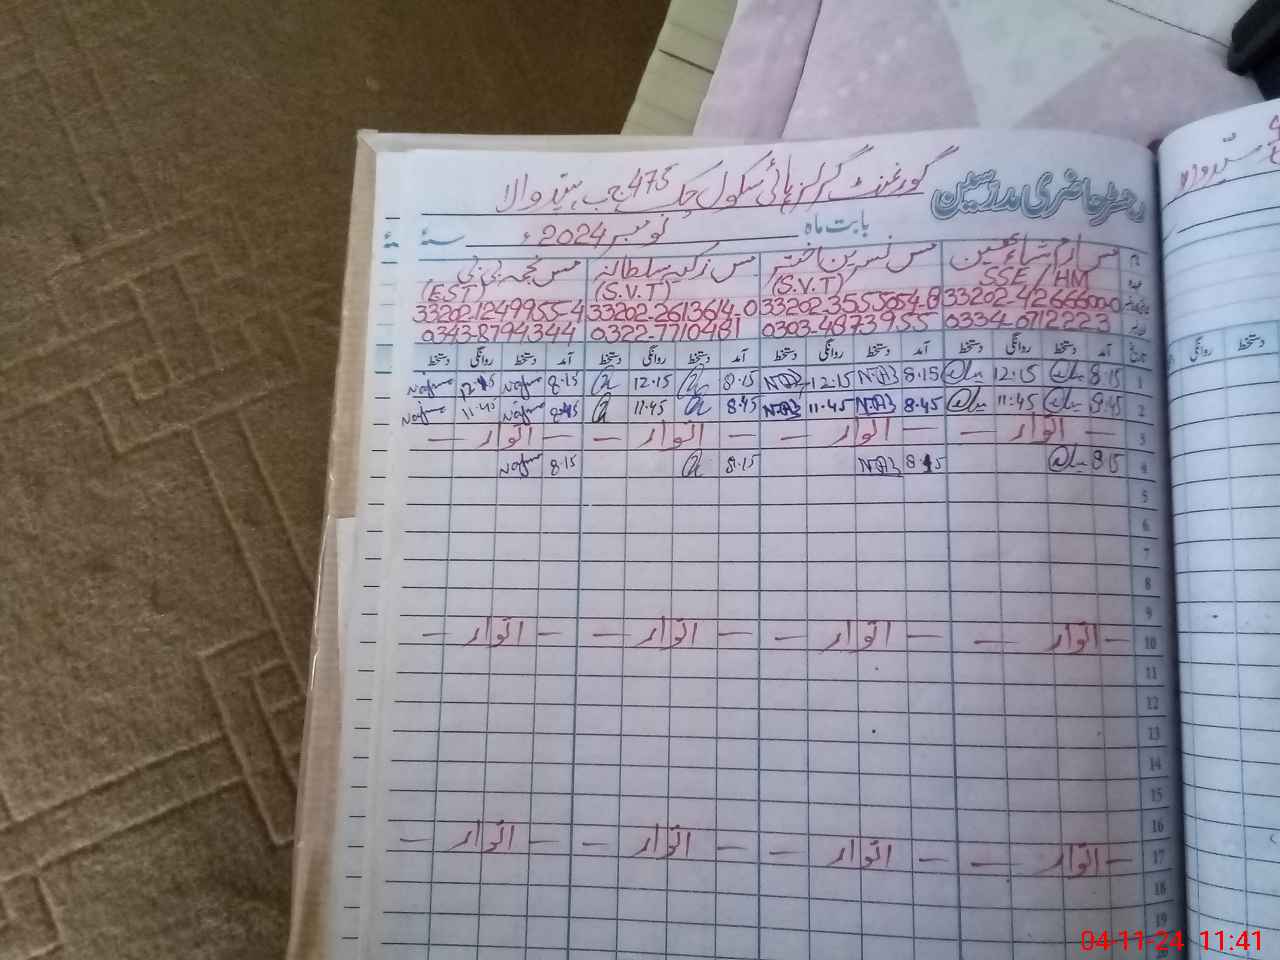 رجسٹر حاضری مدرسین گورنمنٹ گرلز ہائی سکول چک 475 ج ب ہیندوالا
بابت ماہ نومبر 2024ء سنۂ
مس ارم شاہین مس نسرین اختر مس زکیہ سلطانہ مس نجمہ بی بی
SSE / HM (S.V.T) (S.V.T) (E.S.T)
33202-4266600-0 33202-3555054-8 33202-2613614-0 33202-1249955-4
0334-6712223 0303-4873955 0322-7710481 0343-8794344
تاریخ آمد دستخط روانگی دستخط آمد دستخط روانگی دستخط آمد دستخط روانگی دستخط آمد دستخط روانگی دستخط دستخط روانگی
1 8.15 12.15 8.15 N.A3 12.15 N.A3 8.15 12.15 8.15 Najma 12.15 Najma
2 8.45 11.45 8.45 N.A3 11.45 N.A3 8.45 11.45 8.45 Najma 11.45 Najma
3 — اتوار — — اتوار — — اتوار — — اتوار —
4 8.15 8.15 N.A3 8.15 8.15 Najma
5
6
7
8
9
10 — اتوار — — اتوار — — اتوار — — اتوار —
11
12
13
14
15
16
17 — اتوار — — اتوار — — اتوار — — اتوار —
18
19
04-11-24 11:41